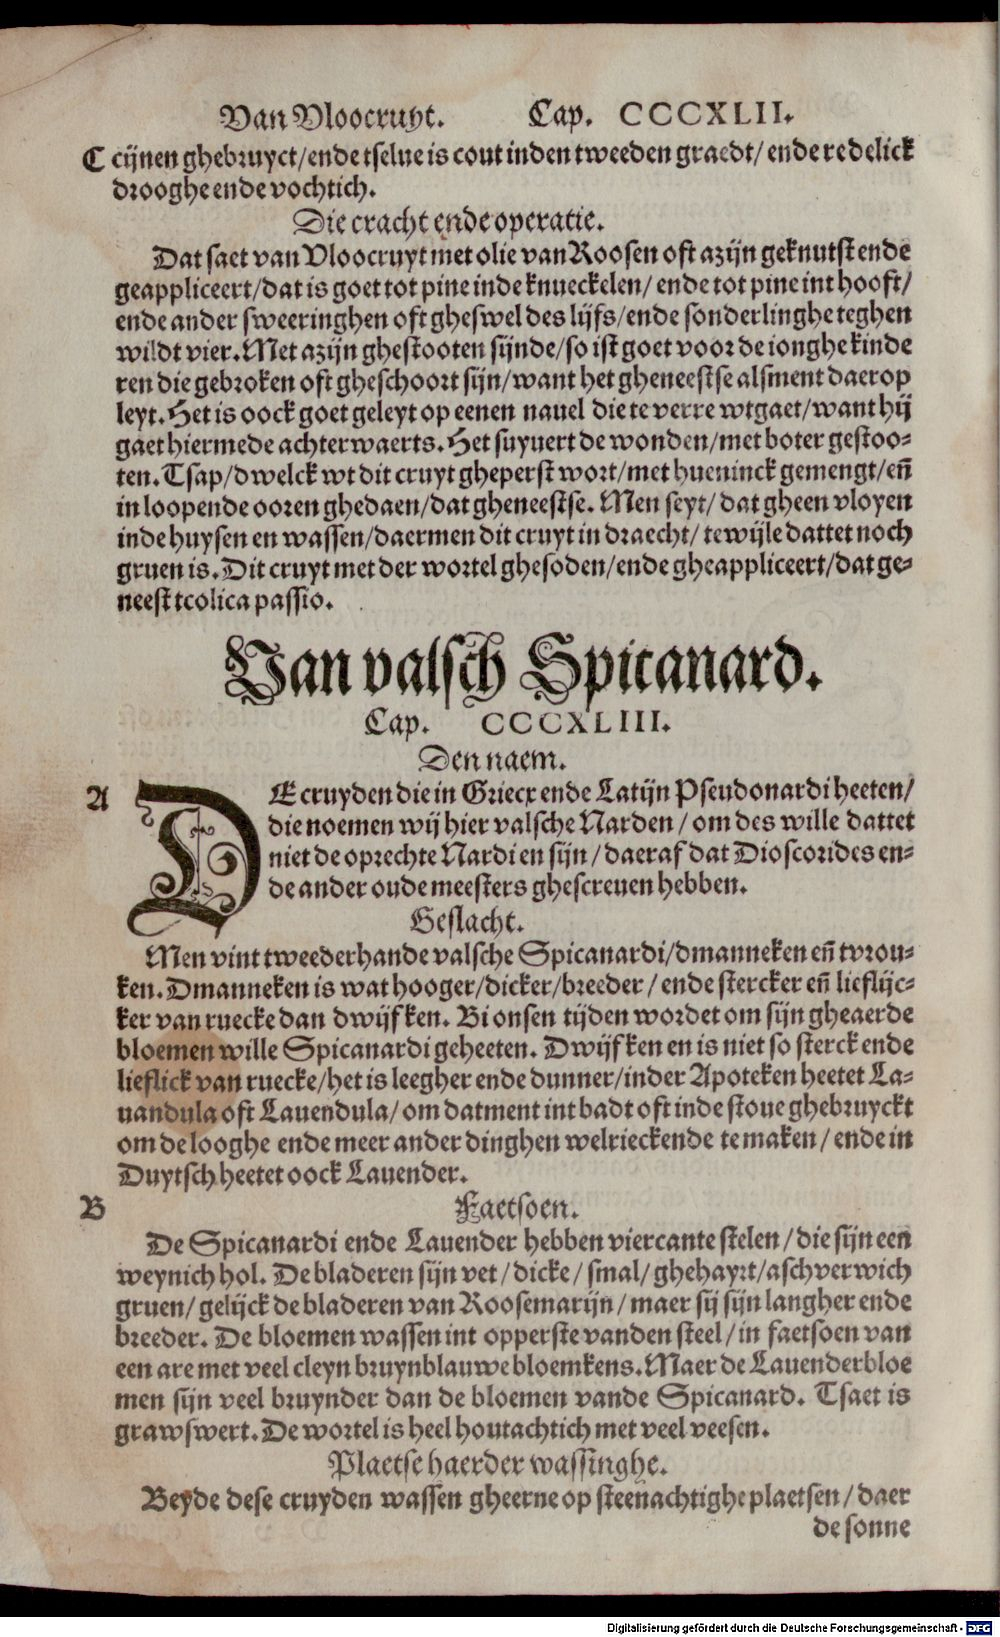 Van Vloocruyt. Cap. CCCXLII.
C cijnen ghebruyct/ende tselue is cout inden tweeden graedt/ende redelick
drooghe ende vochtich.
Die cracht ende operatie.
Dat saet van Vloocruyt met olie van Roosen oft azijn geknutst ende
geappliceert/dat is goet tot pine inde knueckelen/ende tot pine int hooft/
ende ander sweeringhen oft gheswel des lijfs/ende sonderlinghe teghen
wildt vier. Met azijn ghestooten sijnde/so ist goet voor de ionghe kinde
ren die gebroken oft gheschoort sijn/want het gheneestse alsment daer op
leyt. Het is oock goet geleyt op eenen nauel die te verre wtgaet/want hij
gaet hier mede achterwaerts. Het suyuert de wonden/met boter gestoo-
ten. Tsap/dwelck wt dit cruyt gheperst wort/met hueninck gemengt/eñ
in loopende ooren ghedaen/dat gheneestse. Men seyt/dat gheen vloyen
inde huysen en wassen/daermen dit cruyt in draecht/tewijle dattet noch
gruen is. Dit cruyt met der wortel ghesoden/ende gheappliceert/dat ge-
neest tcolica passio.
Van valsch Spicanard.
Cap. CCCXLIII.
Den naem.
A DE cruyden die in Griecx ende Latijn Pseudonardi heeten/
die noemen wij hier valsche Narden/om des wille dattet
niet de oprechte Nardi en sijn/daeraf dat Dioscorides en-
de ander oude meesters ghescreuen hebben.
Geslacht.
Men vint tweederhande valsche Spicanardi/dmanneken eñ tvrou-
ken. Dmanneken is wat hooger/dicker/breeder/ende stercker eñ lieflijc-
ker van ruecke dan dwijfken. Bi onsen tijden wordet om sijn gheaerde
bloemen wille Spicanardi geheeten. Dwijfken en is niet so sterck ende
lieflick van ruecke/het is leegher ende dunner/inder Apoteken heetet La-
uandula oft Lauendula/om datment int badt oft inde stoue ghebruyckt
om de looghe ende meer ander dinghen welrieckende te maken/ende in
Duytsch heetet oock Lauender.
B Faetsoen.
De Spicanardi ende Lauender hebben viercante stelen/die sijn een
weynich hol. De bladeren sijn vet/dicke/smal/ghehayrt/aschverwich
gruen/gelijck de bladeren van Roosemarijn/maer sij sijn langher ende
breeder. De bloemen wassen int opperste vanden steel/in faetsoen van
een are met veel cleyn bruynblauwe bloemkens. Maer de Lauenderbloe
men sijn veel bruynder dan de bloemen vande Spicanard. Tsaet is
grawswert. De wortel is heel houtachtich met veel veesen.
Plaetse haerder wassinghe.
Beyde dese cruyden wassen gheerne op steenachtighe plaetsen/daer
de sonne
Digitalisierung gefördert durch die Deutsche Forschungsgemeinschaft - DFG